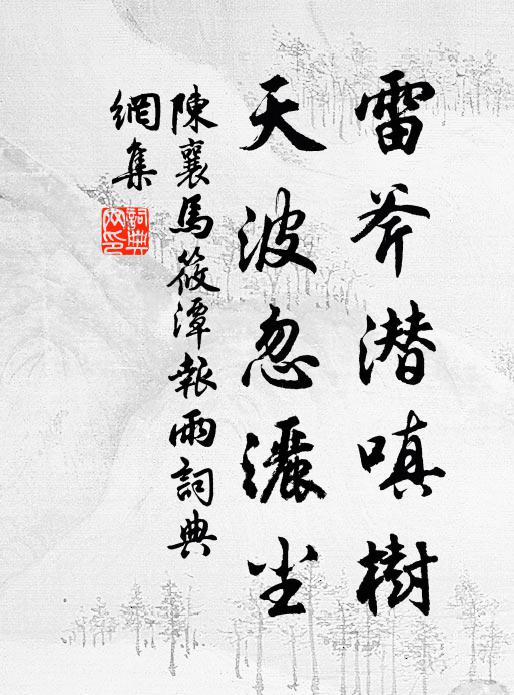 雷斧潜嗔樹
天波忽灑尘
陳襄馬筱潭報雨詞典
網集
詞典
网印